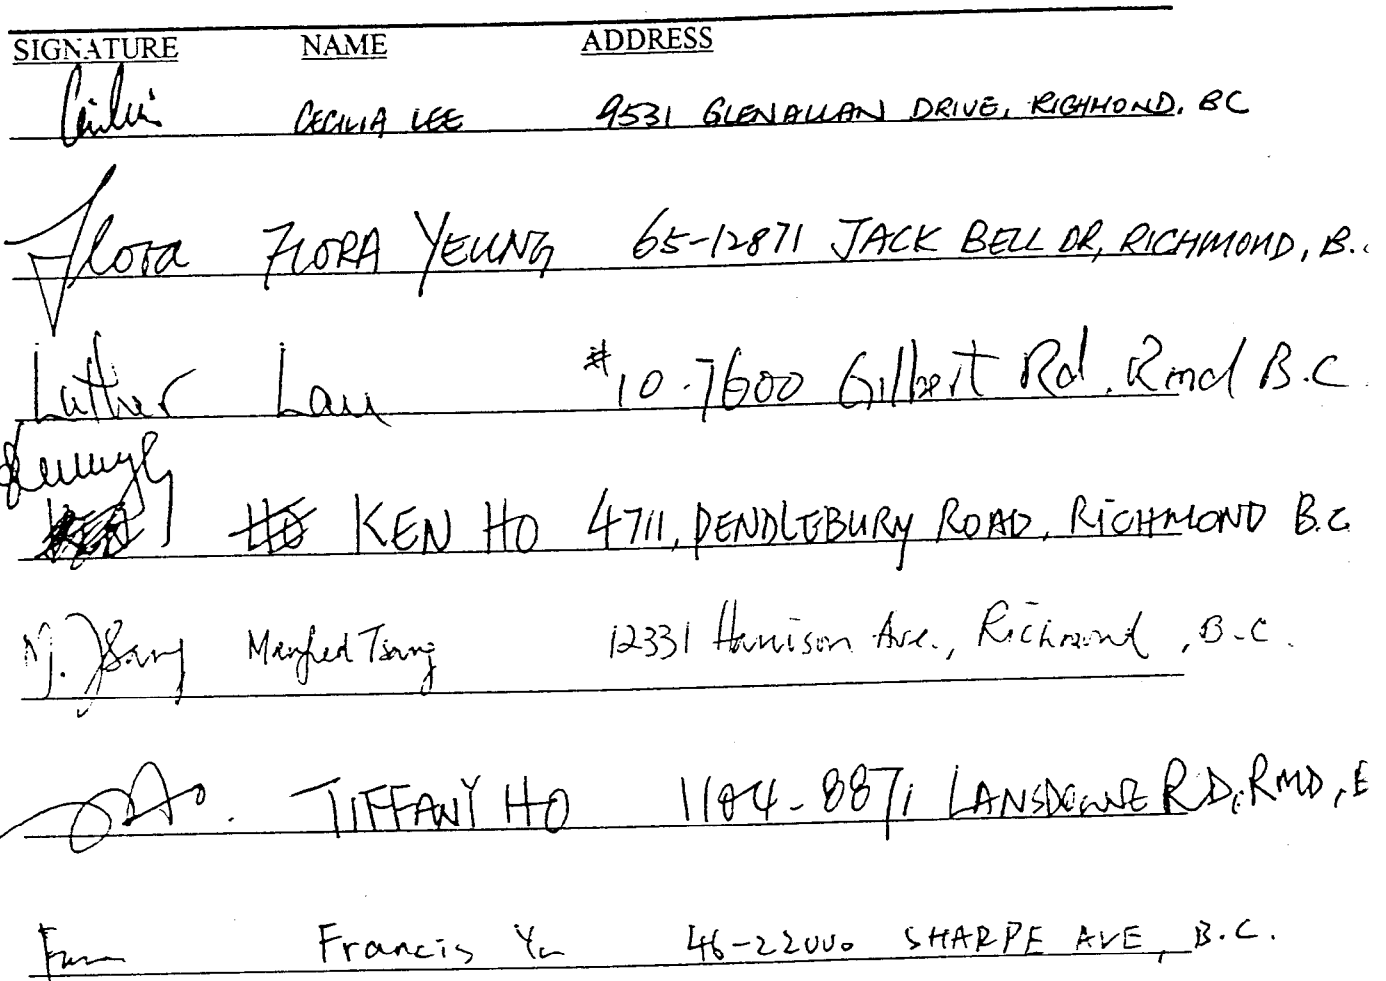 SIGNATURE NAME ADDRESS
Cecilia CECILIA LEE 9531 GLENALLAN DRIVE, RICHMOND, BC
Flora FLORA YEUNG 65-12871 JACK BELL DR, RICHMOND, B.
Luther Lau #10-7600 Gilbert Rd. Rmd B.C
KEN HO 4711, PENDLEBURY ROAD, RICHMOND B.C
M. Tsang Manfred Tsang 12331 Harrison Ave., Richmond, B.C.
TIFFANY HO 1104-8871 LANSDOWNE RD, RMD,
Francis Yu SHARPE AVE, B.C.